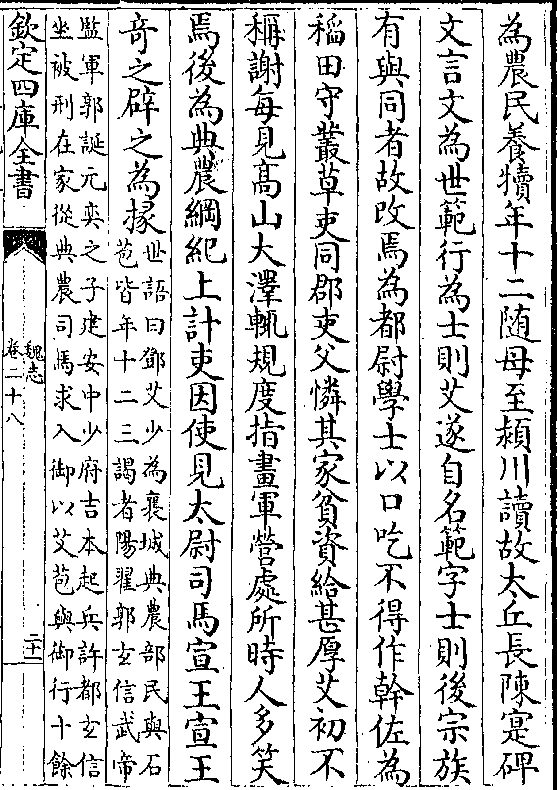 為農民養犢年十二随母至潁川讀故太丘長陳寔碑
文言文為世範行為士則艾遂自名範字士則後宗族
有與同者故改焉為都尉學士以口吃不得作幹佐為
稻田守叢草吏同郡吏父憐其家貧資給甚厚艾初不
稱謝每見髙山大澤輒規度指畫軍營處所時人多笑
焉後為典農綱紀上計吏因使見太尉司馬宣王宣王
竒之辟之為掾
世語曰鄧艾少為襄城典農部民與石
苞皆年十二三謁者陽翟郭玄信武帝
監軍郭誕元奕之子建安中少府吉本起兵許都玄信
坐被刑在家從典農司馬求入御以艾苞與御行十餘
欽定四庫全書
魏志
卷二十八
二十一